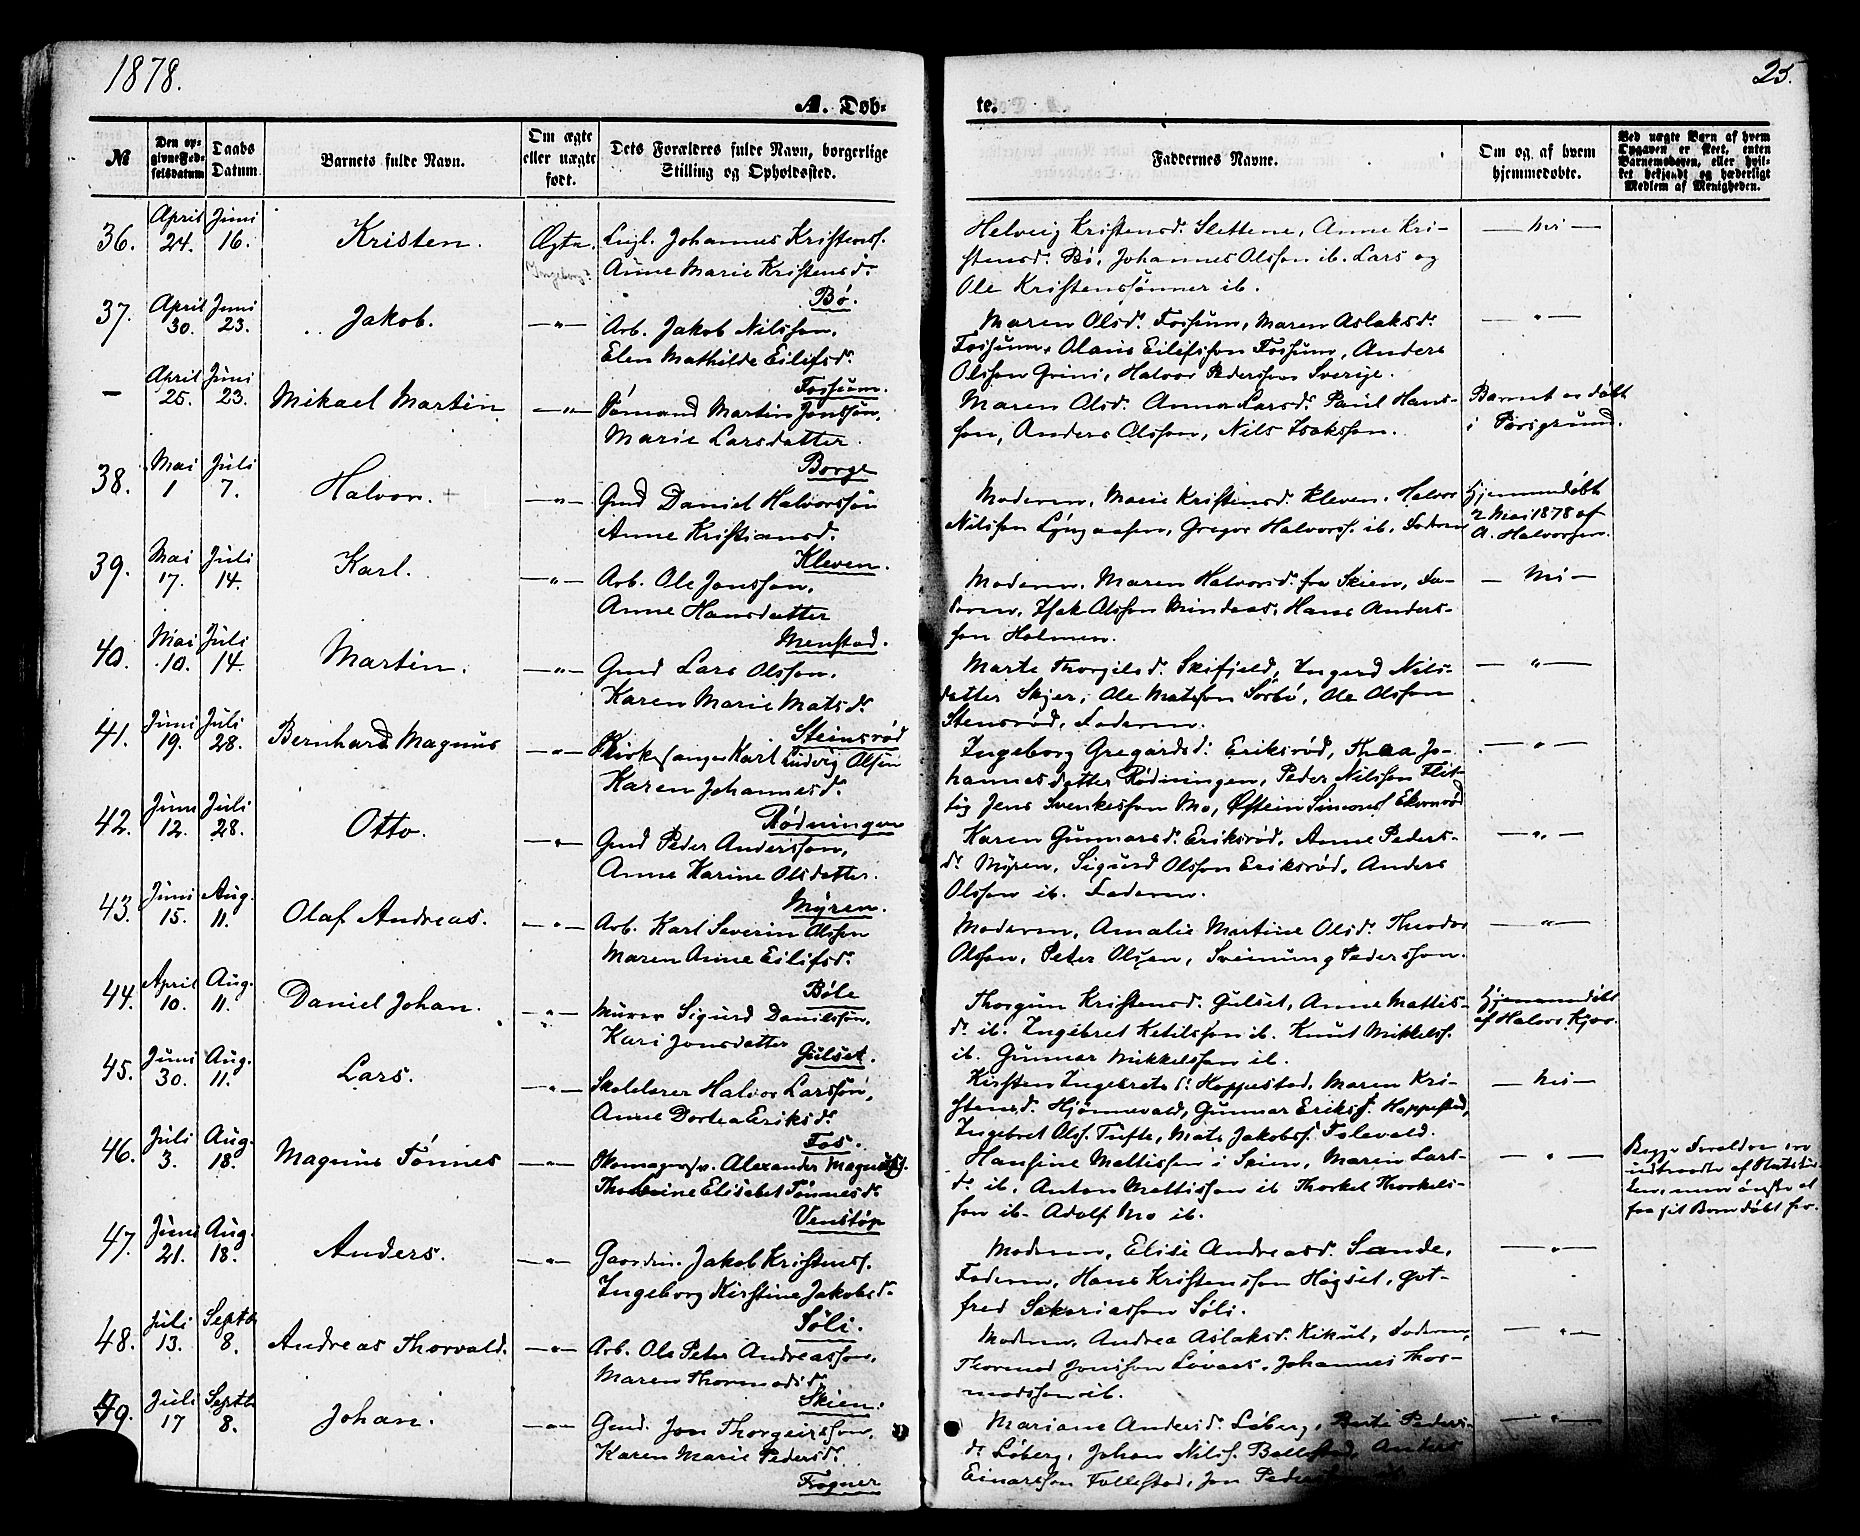 1878.
25.
A. Døb-
te.
№
Den op-
givne Fød-
selsdatum
Daabs
Datum.
Barnets fulde Navn.
Om ægte
eller uægte
født.
Dets Forældres fulde Navn, borgerlige
Stilling og Opholdssted.
Faddernes Navne.
Om og af hvem
hjemmedøbte.
Ved uægte Barn af hvem
Opgaven er skeet, enten
Barnemoderen, eller hvil-
ket bekjendt og hæderligt
Medlem af Menigheden.
36. April 24. Juni 16. Kristen. Ægte.
Johannes Kristenss.
Anne Marie Kristensd.
Bø.
Helveig Kristensd. Slettene, Anne Kri-
stensd. Bø, Johannes Olsson ib. Lars og
Ole Kristenssønner ib.
— nei —
37. April 30. Juni 23. Jakob. — " —
Arb. Jakob Nilsson,
Elen Mathilde Eilifsd.
Fossum.
Maren Olsd. Fossum, Maren Aslaksd.
Fossum, Olaus Eilifsson Fossum, Anders
Olsson Grini, Halvor Pedersson Sverige.
— " —
— April 25. Juni 23. Mikael Martin — " —
Sømand Martin Jonsson,
Marie Larsdatter.
Borge
Maren Olsd. Anna Larsd. Paul Hans-
son, Anders Olsson, Nils Isaksson.
Barnet er døbt
i Porsgrund.
38. Mai 1 Juli 7. Halvor. — " —
Gmd Daniel Halvorssøn
Anne Kristiansd.
Kleven.
Moderen, Marie Kristensd. Kleven, Halvor
Nilsson Lyngaasen, Gregor Halvorss. ib. Faderen
Hjemmedøbt
2 Mai 1878 af
A. Halvorsen.
39. Mai 17. Juli 14. Karl. — " —
Arb. Ole Jonsson,
Anne Hansdatter
Menstad.
Moderen, Maren Halvorsd. fra Skien, Fa-
deren, Isak Olsson Mindaas, Hans Anders-
son Holmen.
— nei —
40. Mai 10. Juli 14. Martin. — " —
Gmd Lars Olsson.
Karen Marie Matsd.
Steinsrød
Marte Thorgilsd. Skifjeld, Ingerd Nils-
datter Skjer, Ole Matsson Sørbø, Ole Olsson
Stensrød, Faderen.
— " —
41. Juni 19. Juli 28. Bernhard Magnus — " —
Kirkesanger Karl Ludvig Olsen
Karen Johannesd.
Rødningen
Ingeborg Gregardsd. Eriksrød, Thea Jo-
hannesdatter Rødningen, Peder Nilsson Flit-
tig Jens Svenkesson Mo, Øistein Simons.
— " —
42. Juni 12. Juli 28. Otto. — " —
Gmd Peder Andersson,
Anne Karine Olsdatter.
Myren.
Karen Gunnarsd. Eriksrød, Anne Peders-
d. Myren, Sigurd Olsson Eriksrød, Anders
Olsson ib. Faderen.
— " —
43. Juni 15. Aug. 11. Olaf Andreas. — " —
Arb. Karl Severin Olssen
Maren Anne Eilifsd.
Bøle
Moderen, Amalie Martine Olsd. Theodor
Olsson, Peter Olsen, Sveinung Pedersson.
— " —
44. April 10. Aug. 11. Daniel Johan. — " —
Murer Sigurd Danielssøn,
Kari Jonsdatter
Gulset.
Thorgun Kristensd. Gulset, Anne Mattis-
d. ib. Ingebret Ketilsson ib. Knut Mikkelss.
ib. Gunnar Mikkelsson ib.
Hjemmedøbt
af Halvor Kjær.
45. Juni 30. Aug. 11. Lars. — " —
Skolelærer Halvor Larssøn,
Anne Dortea Eriksd.
Fos.
Kirsten Ingebretsd. Hoppestad, Maren Kri-
stensd. Hjønnevald, Gunnar Erikss. Hoppestad,
Ingebret Olss. Tufte, Mats Jakobss. Folevald.
— nei —
46. Juli 3. Aug. 18. Magnus Tønnes — " —
Skomagersv. Alexander Magnuss.
Elisabet Tønnesd.
Venstøp
Hansine Mattissen i Skien, Maren Lars-
d. ib. Anton Mattisson ib Thorkel Thorkels-
son ib. Adolf Mo ib.
— " —
Begge Forældre ere
udtraadte af Statskir-
ken, men ønske at
faa sit Barn døbt
47. Juni 21. Aug. 18. Anders. — " —
Jakob Kristenss.
Ingeborg Kirstine Jakobsd.
Søli.
Moderen, Elise Andreasd. Sande,
Faderen, Hans Kristensson Høgset, Got-
fred Sakariasson Søli.
— " —
48. Juli 13. Septbr 8. Andreas Thorvald. — " —
Arb. Ole Peter Andreasson,
Maren Thormodsd.
Skien.
Moderen, Andrea Aslaksd. Kikut, Faderen,
Thormod Jonsson Løvaas, Johannes Thor-
modsson ib.
— " —
49. Juli 17 Septbr 8. Johan. — " —
Gmd. Jon Thorgeirsson,
Karen Marie Pedersd.
Frogner
Mariane Andersd. Løberg, Berte Peders-
d. Løberg, Johan Nilss. Ballestad, Anders
Einarsson Follestad, Jon
— " —